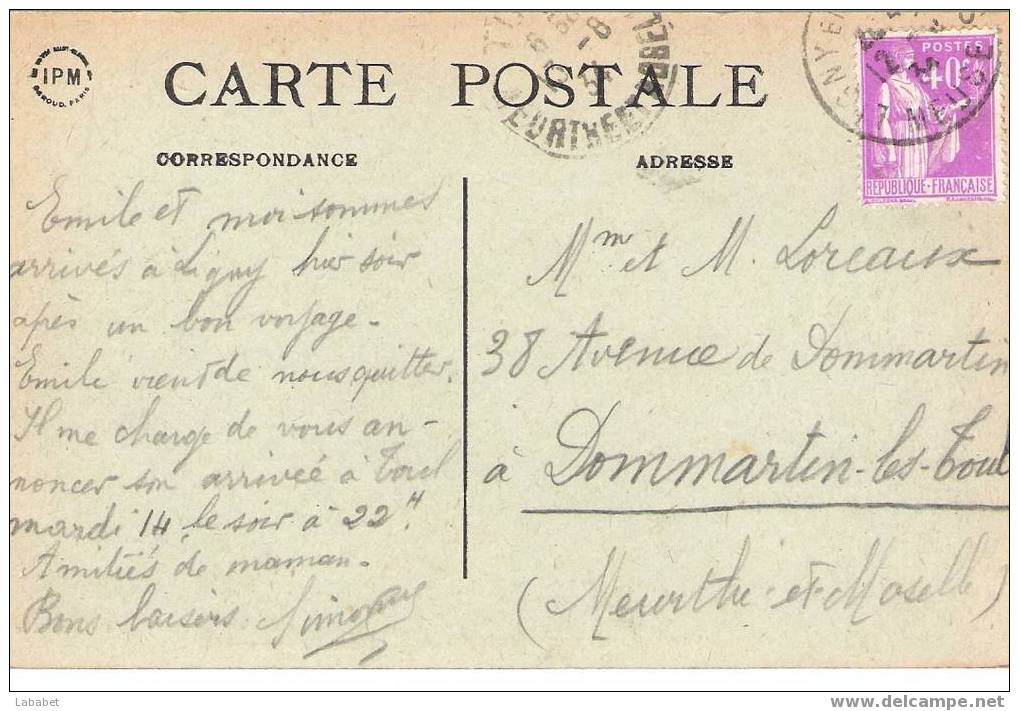 IPM
BAROUD. PARIS
CARTE POSTALE
CORRESPONDANCE
ADRESSE
POSTES
40c
RÉPUBLIQUE-FRANÇAISE
MEUSE
Emile et moi sommes
arrivés à Ligny hier soir
après un bon voyage.
Emile vient de nous quitter.
Il me charge de vous an-
noncer son arrivée à Toul
mardi 14 le soir à 22H.
Amitiés de maman.
Bons baisers. Simone
Mme et M. Loreaux
38 Avenue de Dommartin
à Dommartin-les-Toul
(Meurthe-et-Moselle)
Lababet
www.delcampe.net